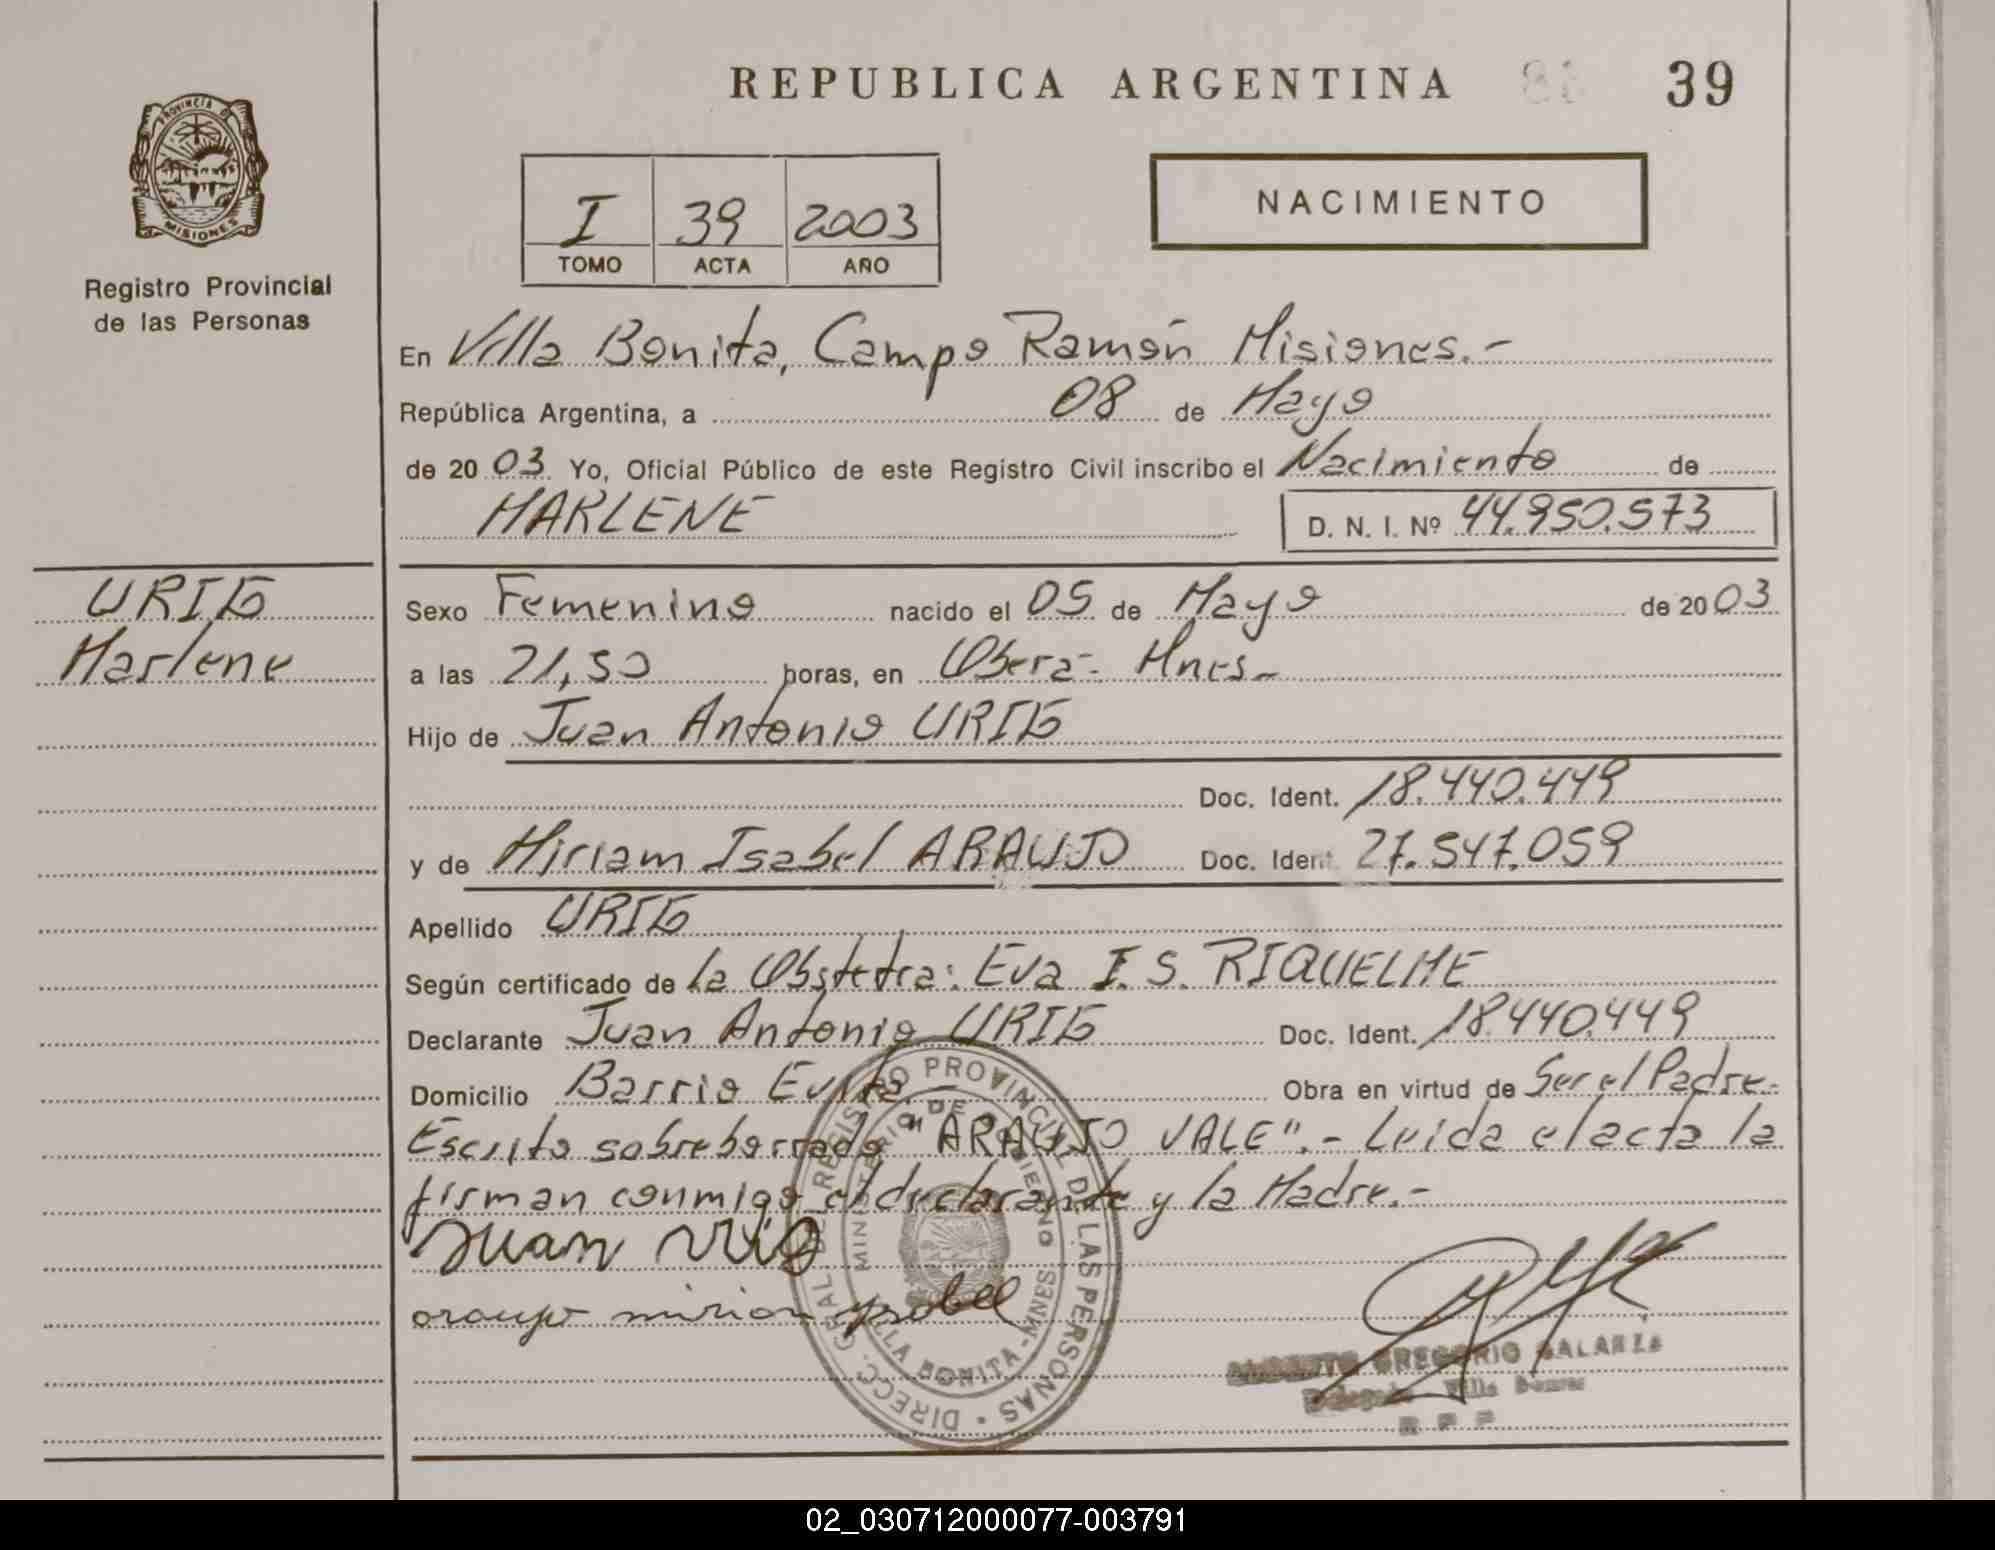 REPUBLICA ARGENTINA 39
PROVINCIA DE
MISIONES
Registro Provincial
de las Personas
I 39 2003
TOMO ACTA AÑO
NACIMIENTO
En Villa Bonita, Campo Ramón Misiones.-
República Argentina, a 08 de Mayo
de 2003 Yo, Oficial Público de este Registro Civil inscribo el Nacimiento de
MARLENE D. N. I. Nº 44.950.573
URIG
Marlene
Sexo Femenino nacido el 05 de Mayo de 2003
a las 21,50 horas, en Oberá- Mnes-
Hijo de Juan Antonio URIG
Doc. Ident. 18.440.449
y de Miriam Isabel ARAUJO Doc. Ident. 27.547.059
Apellido URIG
Según certificado de la Obstetra: Eva I. S. RIQUELME
Declarante Juan Antonio URIG Doc. Ident. 18.440.449
Domicilio Barrio Evita Obra en virtud de Ser el Padre.-
Escrito sobreborrado "ARAUJO VALE".- Leida el acta la
firman conmigo el declarante y la Madre.-
Juan Urig
araujo mirian ysabel
DIRECC. GRAL. DEL REGISTRO PROVINCIAL DE LAS PERSONAS
MINISTERIO DE GOBIERNO
VILLA BONITA - MNES
GREGORIO GALARZA
Villa
R P P
02_030712000077-003791